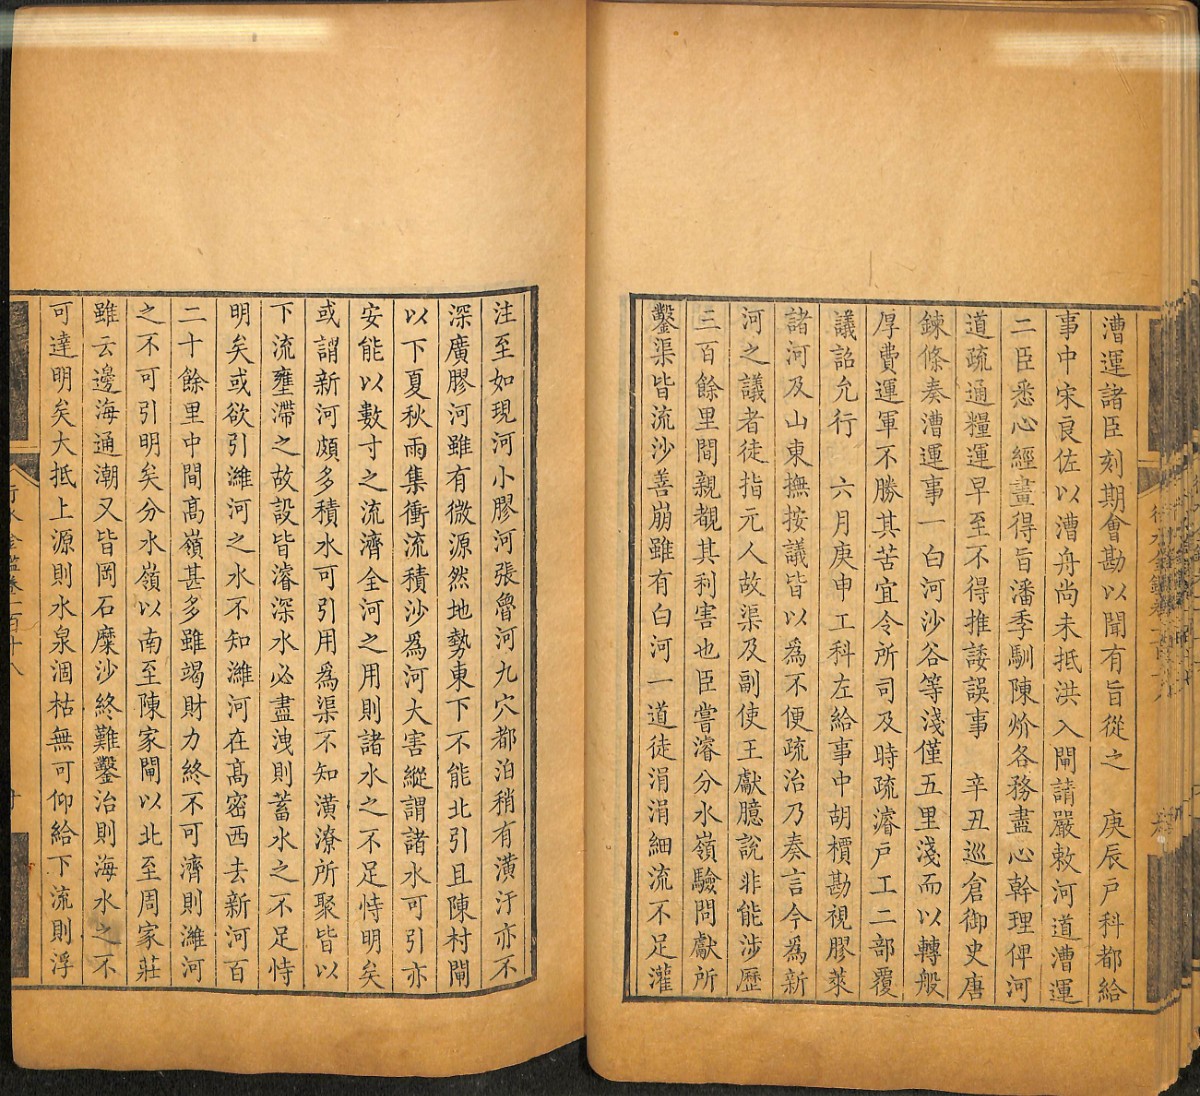 漕運諸臣刻期會勘以聞有旨從之　庚辰戶科都給
事中宋良佐以漕舟尚未抵洪入閘請嚴敕河道漕運
二臣悉心經畫得旨潘季馴陳炌各務盡心幹理俾河
道疏通糧運早至不得推諉誤事　辛丑巡倉御史唐
鍊條奏漕運事一白河沙谷等淺僅五里淺而以轉般
厚費運軍不勝其苦宜令所司及時疏濬戶工二部覆
議詔允行　六月庚申工科左給事中胡檟勘視膠萊
諸河及山東撫按議皆以為不便疏治乃奏言今為新
河之議者徒指元人故渠及副使王獻臆說非能涉歷
三百餘里間親覩其利害也臣嘗濬分水嶺驗問獻所
鑿渠皆流沙善崩雖有白河一道徒涓涓細流不足灌
注至如現河小膠河張魯河九穴都泊稍有潢汙亦不
深廣膠河雖有微源然地勢東下不能北引且陳村閘
以下夏秋雨集衝流積沙為河大害縱謂諸水可引亦
安能以數寸之流濟全河之用則諸水之不足恃明矣
或謂新河頗多積水可引用為渠不知潢潦所聚皆以
下流壅滯之故設皆濬深水必盡洩則蓄水之不足恃
明矣或欲引濰河之水不知濰河在高密西去新河百
二十餘里中間高嶺甚多雖竭財力終不可濟則濰河
之不可引明矣分水嶺以南至陳家閘以北至周家莊
雖云邊海通潮又皆岡石糜沙終難鑿治則海水之不
可達明矣大抵上源則水泉涸枯無可仰給下流則浮